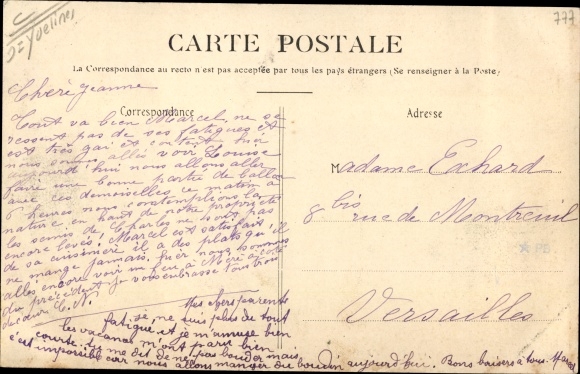 D=Yvelines
777
CARTE POSTALE
La Correspondance au recto n'est pas acceptée par tous les pays étrangers (Se renseigner à la Poste)
Correspondance
Adresse
Chère Jeanne
Tout va bien Marcel ne se
ressent pas de ses fatigues et
est très gai et content hier
nous sommes allés voir Louise
aujourd'hui nous allons aller
faire une bonne partie de ballon
avec ces demoiselles ce matin à
6 heures nous contemplions la
nature en haut de notre propriété
les senus de Charles ne sont pas
encore levés, Marcel est satisfait
de sa cuisinière il a des plats qu'il
ne mange jamais. hier nous sommes
allés encore voir un feu à Méré à côté
du précédent je vous embrasse tous trois
de cœur
Mes chers parents
je ne suis plus du tout
fatigué et je m'amuse bien
les vacances m'ont paru bien
courte. tu me dit de ne pas bouder mais
c'est impossible car nous allons manger du boudin aujourd'hui. Bons baisers à tous. Marcel
Madame Exhard
8 bis rue de Montreuil
Versailles
* PB